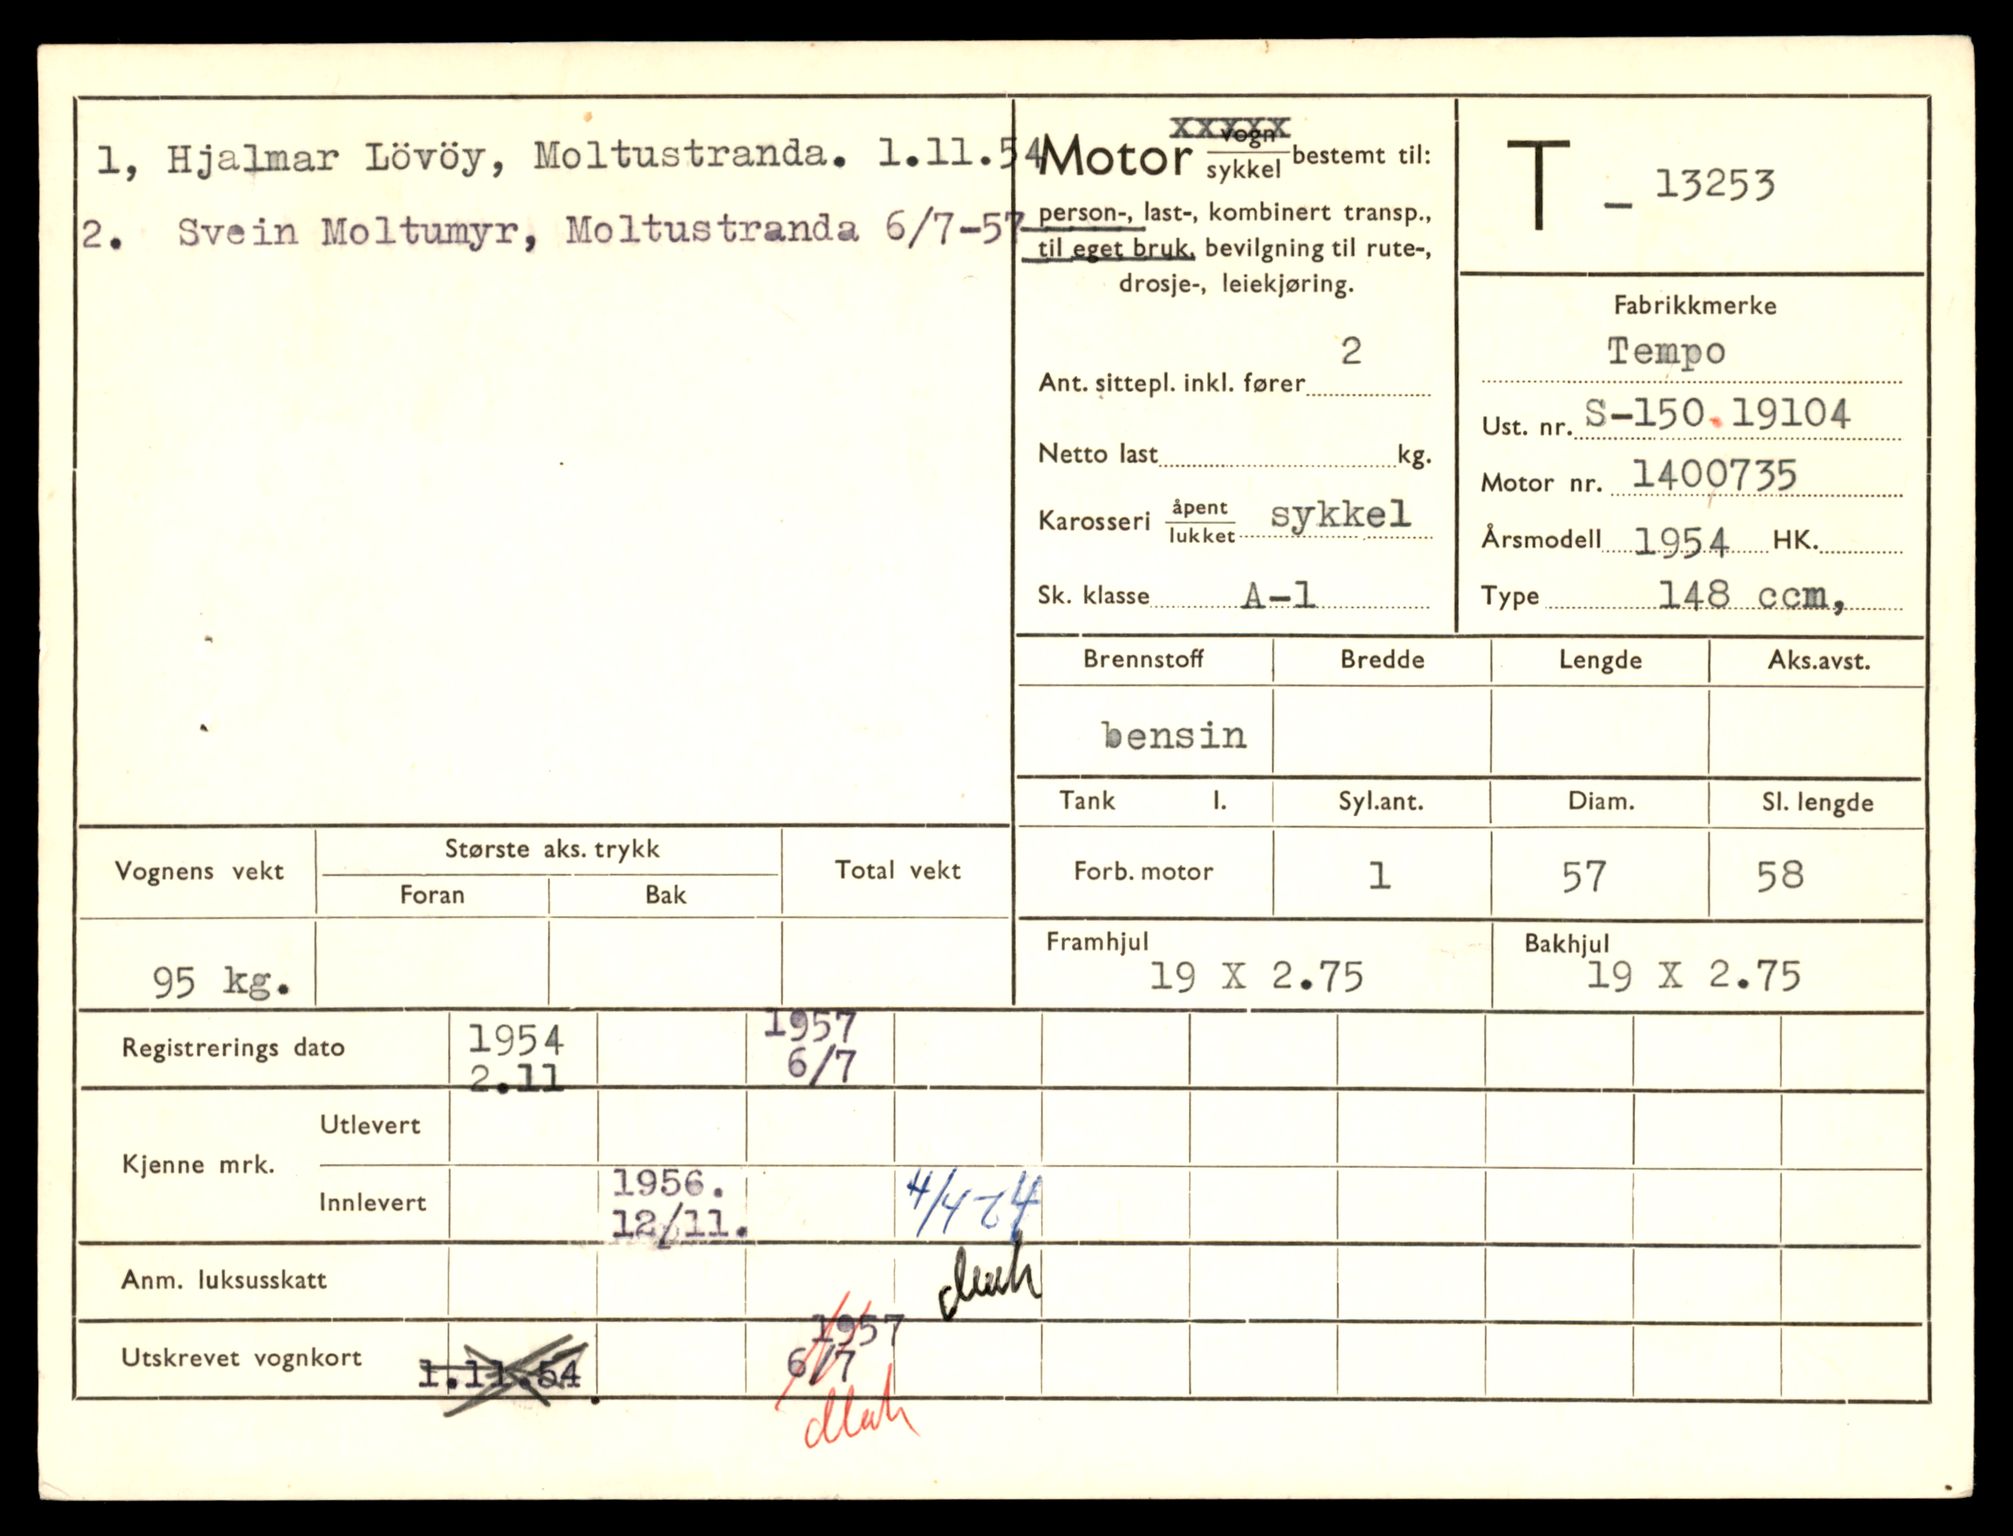 1, Hjalmar Lövöy, Moltustranda. 1.11.54
2. Svein Moltumyr, Moltustranda 6/7-57
Motor vogn/sykkel bestemt til:
person-, last-, kombinert transp.,
til eget bruk, bevilgning til rute-,
drosje-, leiekjøring.
Ant. sittepl. inkl. fører 2
Netto last kg.
Karosseri åpent/lukket sykkel
Sk. klasse A-1
T - 13253
Fabrikkmerke
Tempo
Ust. nr. S-150.19104
Motor nr. 1400735
Årsmodell 1954 HK.
Type 148 ccm,
Brennstoff Bredde Lengde Aks.avst.
bensin
Tank l. Syl.ant. Diam. Sl. lengde
Forb. motor 1 57 58
Framhjul Bakhjul
19 X 2.75 19 X 2.75
Vognens vekt Største aks. trykk Total vekt
Foran Bak
95 kg.
Registrerings dato 1954 1957
2.11 6/7
Kjenne mrk. Utlevert
Innlevert 1956. 4/4
12/11.
Anm. luksusskatt
Utskrevet vognkort 1.11.54. 1957
6/7